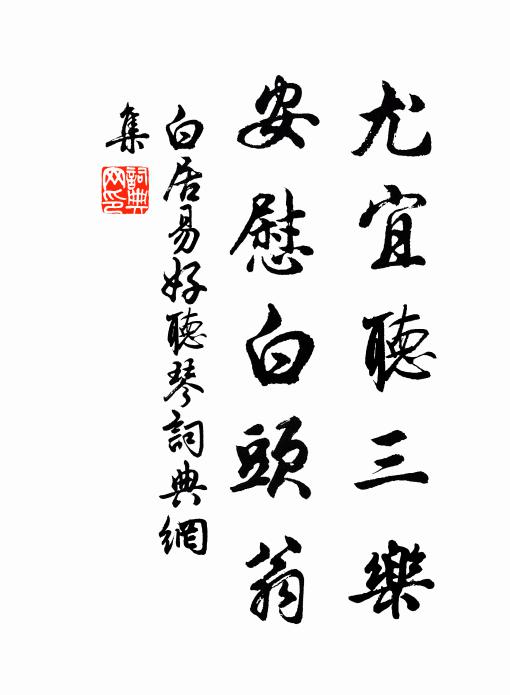 尤宜聽三樂
安慰白頭翁
白居易好聽琴詞典網
集
詞典网印